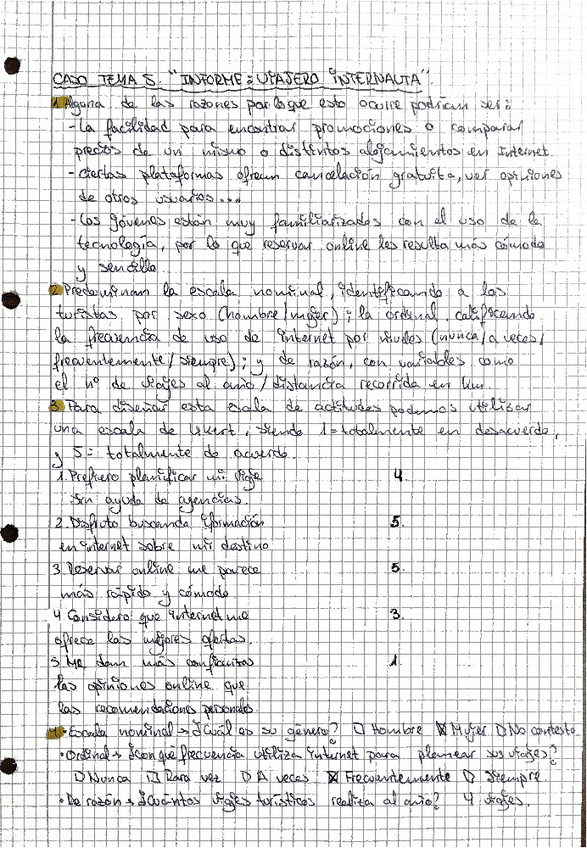 CASO TEMA 5. "INFORME: VIAJERO INTERNAUTA".
1. Alguna de las razones por lo que esto ocurre podrían ser:
- La facilidad para encontrar promociones o comparar
precios de un mismo o distintos alojamientos en Internet.
- Ciertas plataformas ofrecen cancelación gratuita, ver opiniones
de otros usuarios...
- Los jóvenes están muy familiarizados con el uso de la
tecnología, por lo que reservar online les resulta más cómodo
y sencillo.
2. Predominan la escala nominal, identificando a los
turistas por sexo (hombre/mujer); la ordinal, calificando
la frecuencia de uso de internet por niveles (nunca/a veces/
frecuentemente/siempre); y de razón, con variables como
el nº de viajes al año/distancia recorrida en km.
3. Para diseñar esta escala de actitudes podemos utilizar
una escala de Likert, siendo 1=totalmente en desacuerdo,
y 5= totalmente de acuerdo.
1. Prefiero planificar mi viaje 4
sin ayuda de agencias.
2. Disfruto buscando información 5.
en internet sobre mi destino
3. Reservar online me parece 5.
más rápido y cómodo
4. Considero que internet me 3.
ofrece las mejores ofertas.
5. Me dan más confianza 1.
las opiniones online que
las recomendaciones personales
4. • Escala nominal → ¿Cuál es su género? ☐ Hombre ☒ Mujer ☐ No contesto.
• Ordinal → ¿Con que frecuencia utiliza internet para planear sus viajes?
☐ Nunca ☐ Rara vez ☐ A veces ☒ Frecuentemente ☐ Siempre
• De razón → ¿Cuántos viajes turísticos realiza al año? 4 viajes.